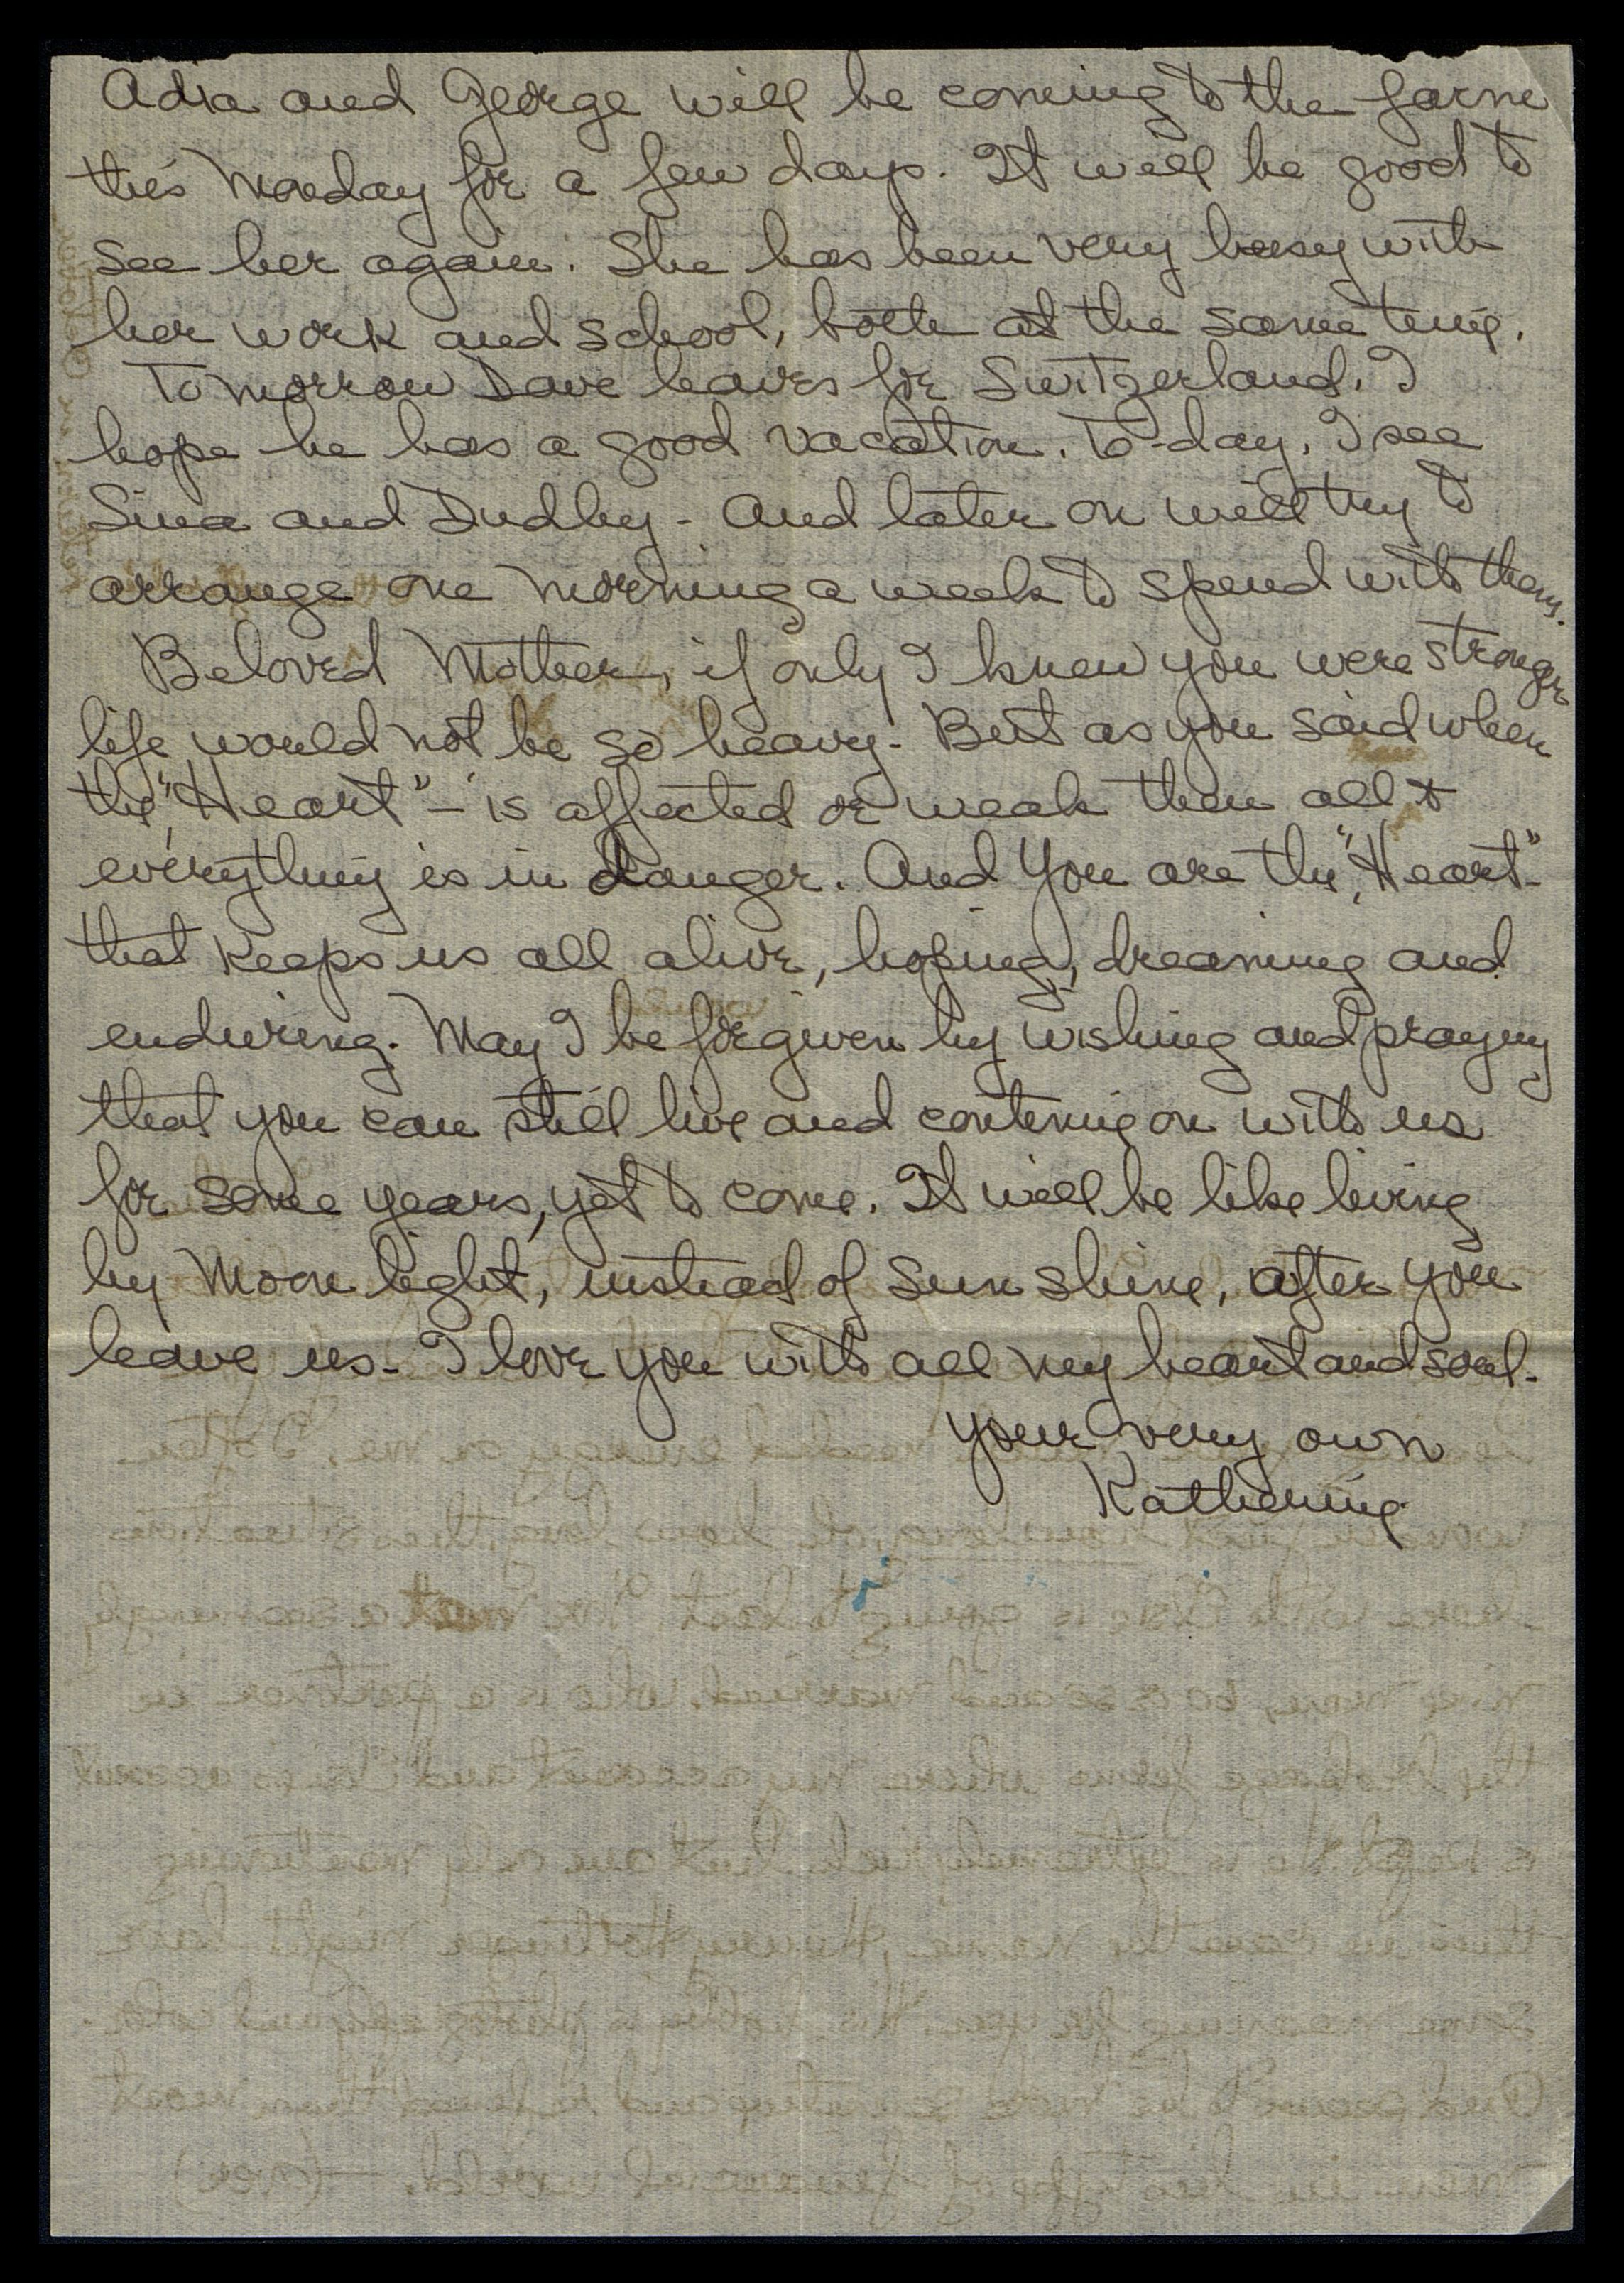 Adia and George will be coming to the farm
this Monday for a few days. It will be good to
see her again. She has been very busy with
her work and school, both at the same time.
Tomorrow Dave leaves for Switzerland. I
hope he has a good vacation. To-day, I see
Sina and Dudley - And later on will try to
arrange one morning a week to spend with them.
Beloved Mother, if only I knew you were stronger
life would not be so heavy - But as you said when
the "Heart" - is affected or weak then all &
everything is in danger. And You are the "Heart" -
that keeps us all alive, hoping, dreaming and
enduring. May I be forgiven by wishing and praying
that you can still live and continue on with us
for some years, yet to come. It will be like living
by Moon light, instead of Sun shine, after you
leave us - I love you with all my heart and soul -
your very own
Katherine